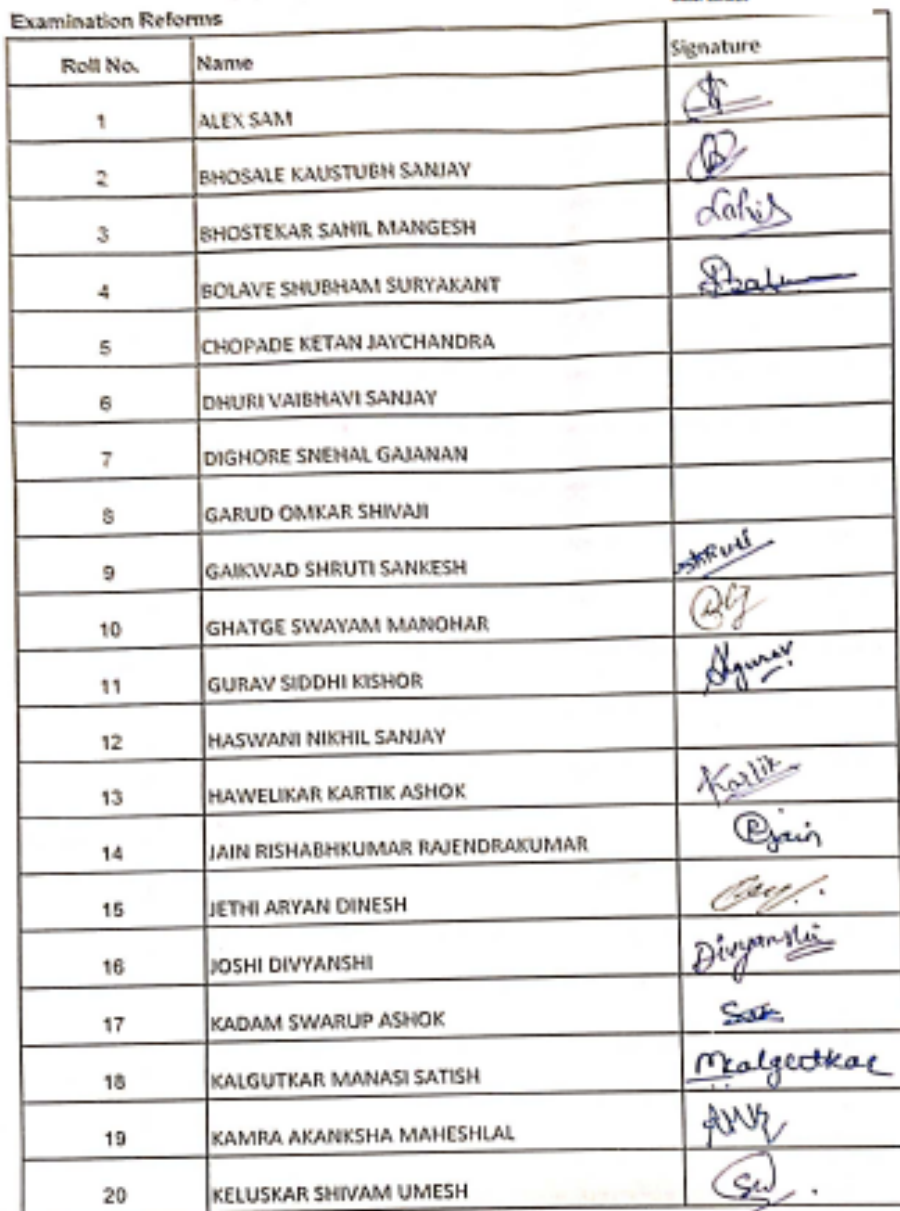 Examination Reforms
Roll No. Name Signature
1 ALEX SAM
2 BHOSALE KAUSTUBH SANJAY
3 BHOSTEKAR SAHIL MANGESH Sahil
4 BOLAVE SHUBHAM SURYAKANT
5 CHOPADE KETAN JAYCHANDRA
6 DHURI VAIBHAVI SANJAY
7 DIGHORE SNEHAL GAJANAN
8 GARUD OMKAR SHIVAJI
9 GAIKWAD SHRUTI SANKESH Shruti
10 GHATGE SWAYAM MANOHAR
11 GURAV SIDDHI KISHOR Sgurav
12 HASWANI NIKHIL SANJAY
13 HAWELIKAR KARTIK ASHOK Kartik
14 JAIN RISHABHKUMAR RAJENDRAKUMAR Rjain
15 JETHI ARYAN DINESH
16 JOSHI DIVYANSHI Divyanshi
17 KADAM SWARUP ASHOK
18 KALGUTKAR MANASI SATISH Mkalgutkar
19 KAMRA AKANKSHA MAHESHLAL
20 KELUSKAR SHIVAM UMESH